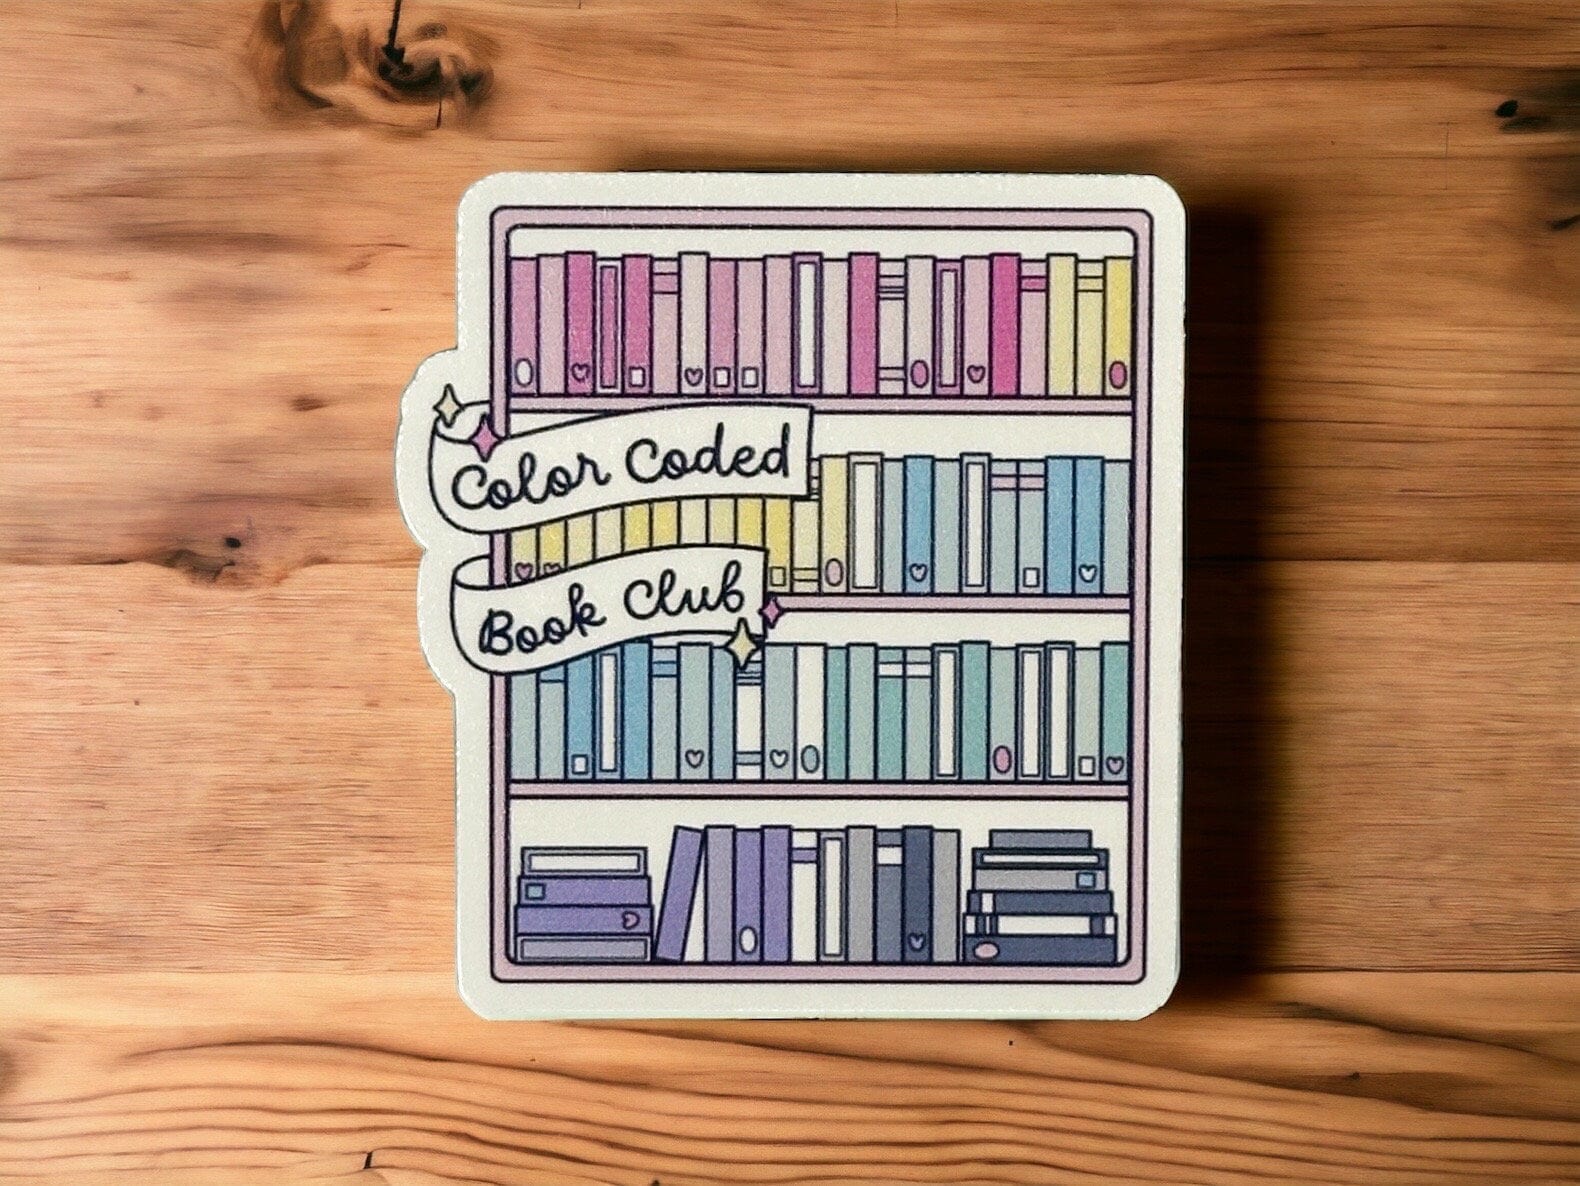 Color Coded
Book Club